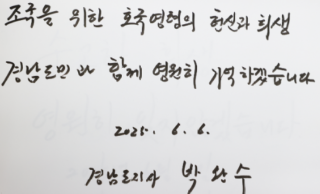 조국을 위한 호국영령의 헌신과 희생
경남도민과 함께 영원히 기억하겠습니다
2025. 6. 6.
경남도지사 박완수